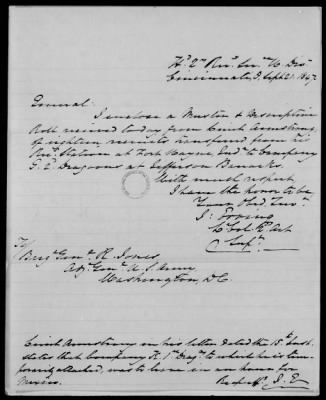 Hd. Qrs. Recg. Serv. W. Divn.
Cincinnati, O. Sept. 21. 1847.
General:
I enclose a Muster & Descriptive
Roll received to day from Lieut Armstrong,
of eighteen recruits transferred from his
Station at Fort Wayne, to Company
Dragoons at Jefferson Barracks.
With much respect
I have the honor to be
Your Obd. Servt.
J. Erving
Lt. Col. Art
Supt.
To
Brig. Genl. R. Jones,
Adj. Genl. U. S. Army
Washington, D.C.
Lieut Armstrong in his letter dated the 15th Inst.
states that Company K. 1st Drags. to which he is tem-
porarily attached, was to leave in an hour for
Mexico. J. E.